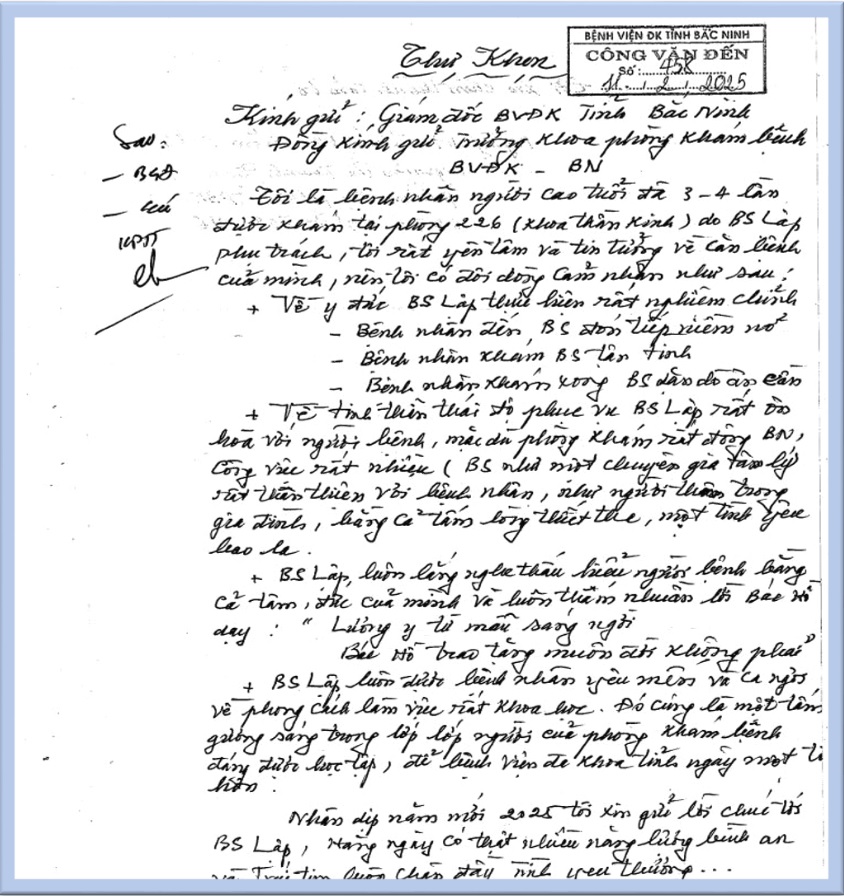 Thư Khen
BỆNH VIỆN ĐK TỈNH BẮC NINH
CÔNG VĂN ĐẾN
Số: 458
11 / 2 / 2025
Kính gửi: Giám đốc BVĐK Tỉnh Bắc Ninh
Đồng kính gửi Trưởng khoa phòng khám bệnh
BVĐK - BN
Sao:
- BGĐ
Tôi là bệnh nhân người cao tuổi đã 3-4 lần
được khám tại phòng 226 (khoa thần kinh) do BS Lập
phụ trách, tôi rất yên tâm và tin tưởng về căn bệnh
của mình, nên tôi có đôi dòng cảm nhận như sau:
+ Về y đức BS Lập thực hiện rất nghiêm chỉnh
- Bệnh nhân đến, BS đón tiếp niềm nở
- Bệnh nhân khám BS tận tình
- Bệnh nhân khám xong BS dặn dò ân cần
+ Về tinh thần thái độ phục vụ BS Lập rất ôn
hòa với người bệnh, mặc dù phòng khám rất đông BN,
công việc rất nhiều (BS như một chuyên gia tâm lý
rất thân thiện với bệnh nhân, như người thân trong
gia đình, bằng cả tấm lòng thiết tha, một tình yêu
bao la.
+ BS Lập, luôn lắng nghe thấu hiểu người bệnh bằng
cả tâm, đức của mình và luôn thấm nhuần lời Bác Hồ
dạy: " Lương y từ mẫu sáng ngời
Bác Hồ trao tặng muôn đời không phai"
+ BS Lập luôn được bệnh nhân yêu mến và ca ngợi
về phong cách làm việc rất khoa học. Đó cũng là một tấm
gương sáng trong lớp lớp người của phòng khám bệnh
đáng được học tập, để bệnh viện đa khoa tỉnh ngày một
hơn.
Nhân dịp năm mới 2025 tôi xin gửi lời chúc tới
BS Lập, hàng ngày có thật nhiều năng lượng bình an
và trái tim luôn chan đầy tình yêu thương...